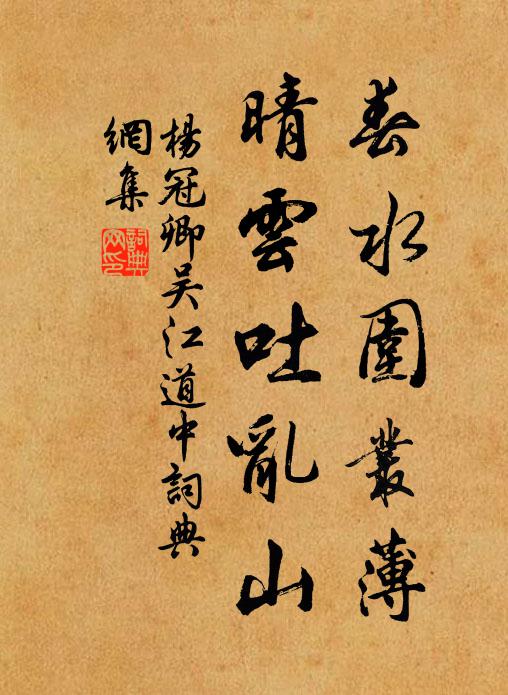 春水圍叢薄
晴雲吐亂山
楊冠卿吴江道中詞典
網集
詞典
网印